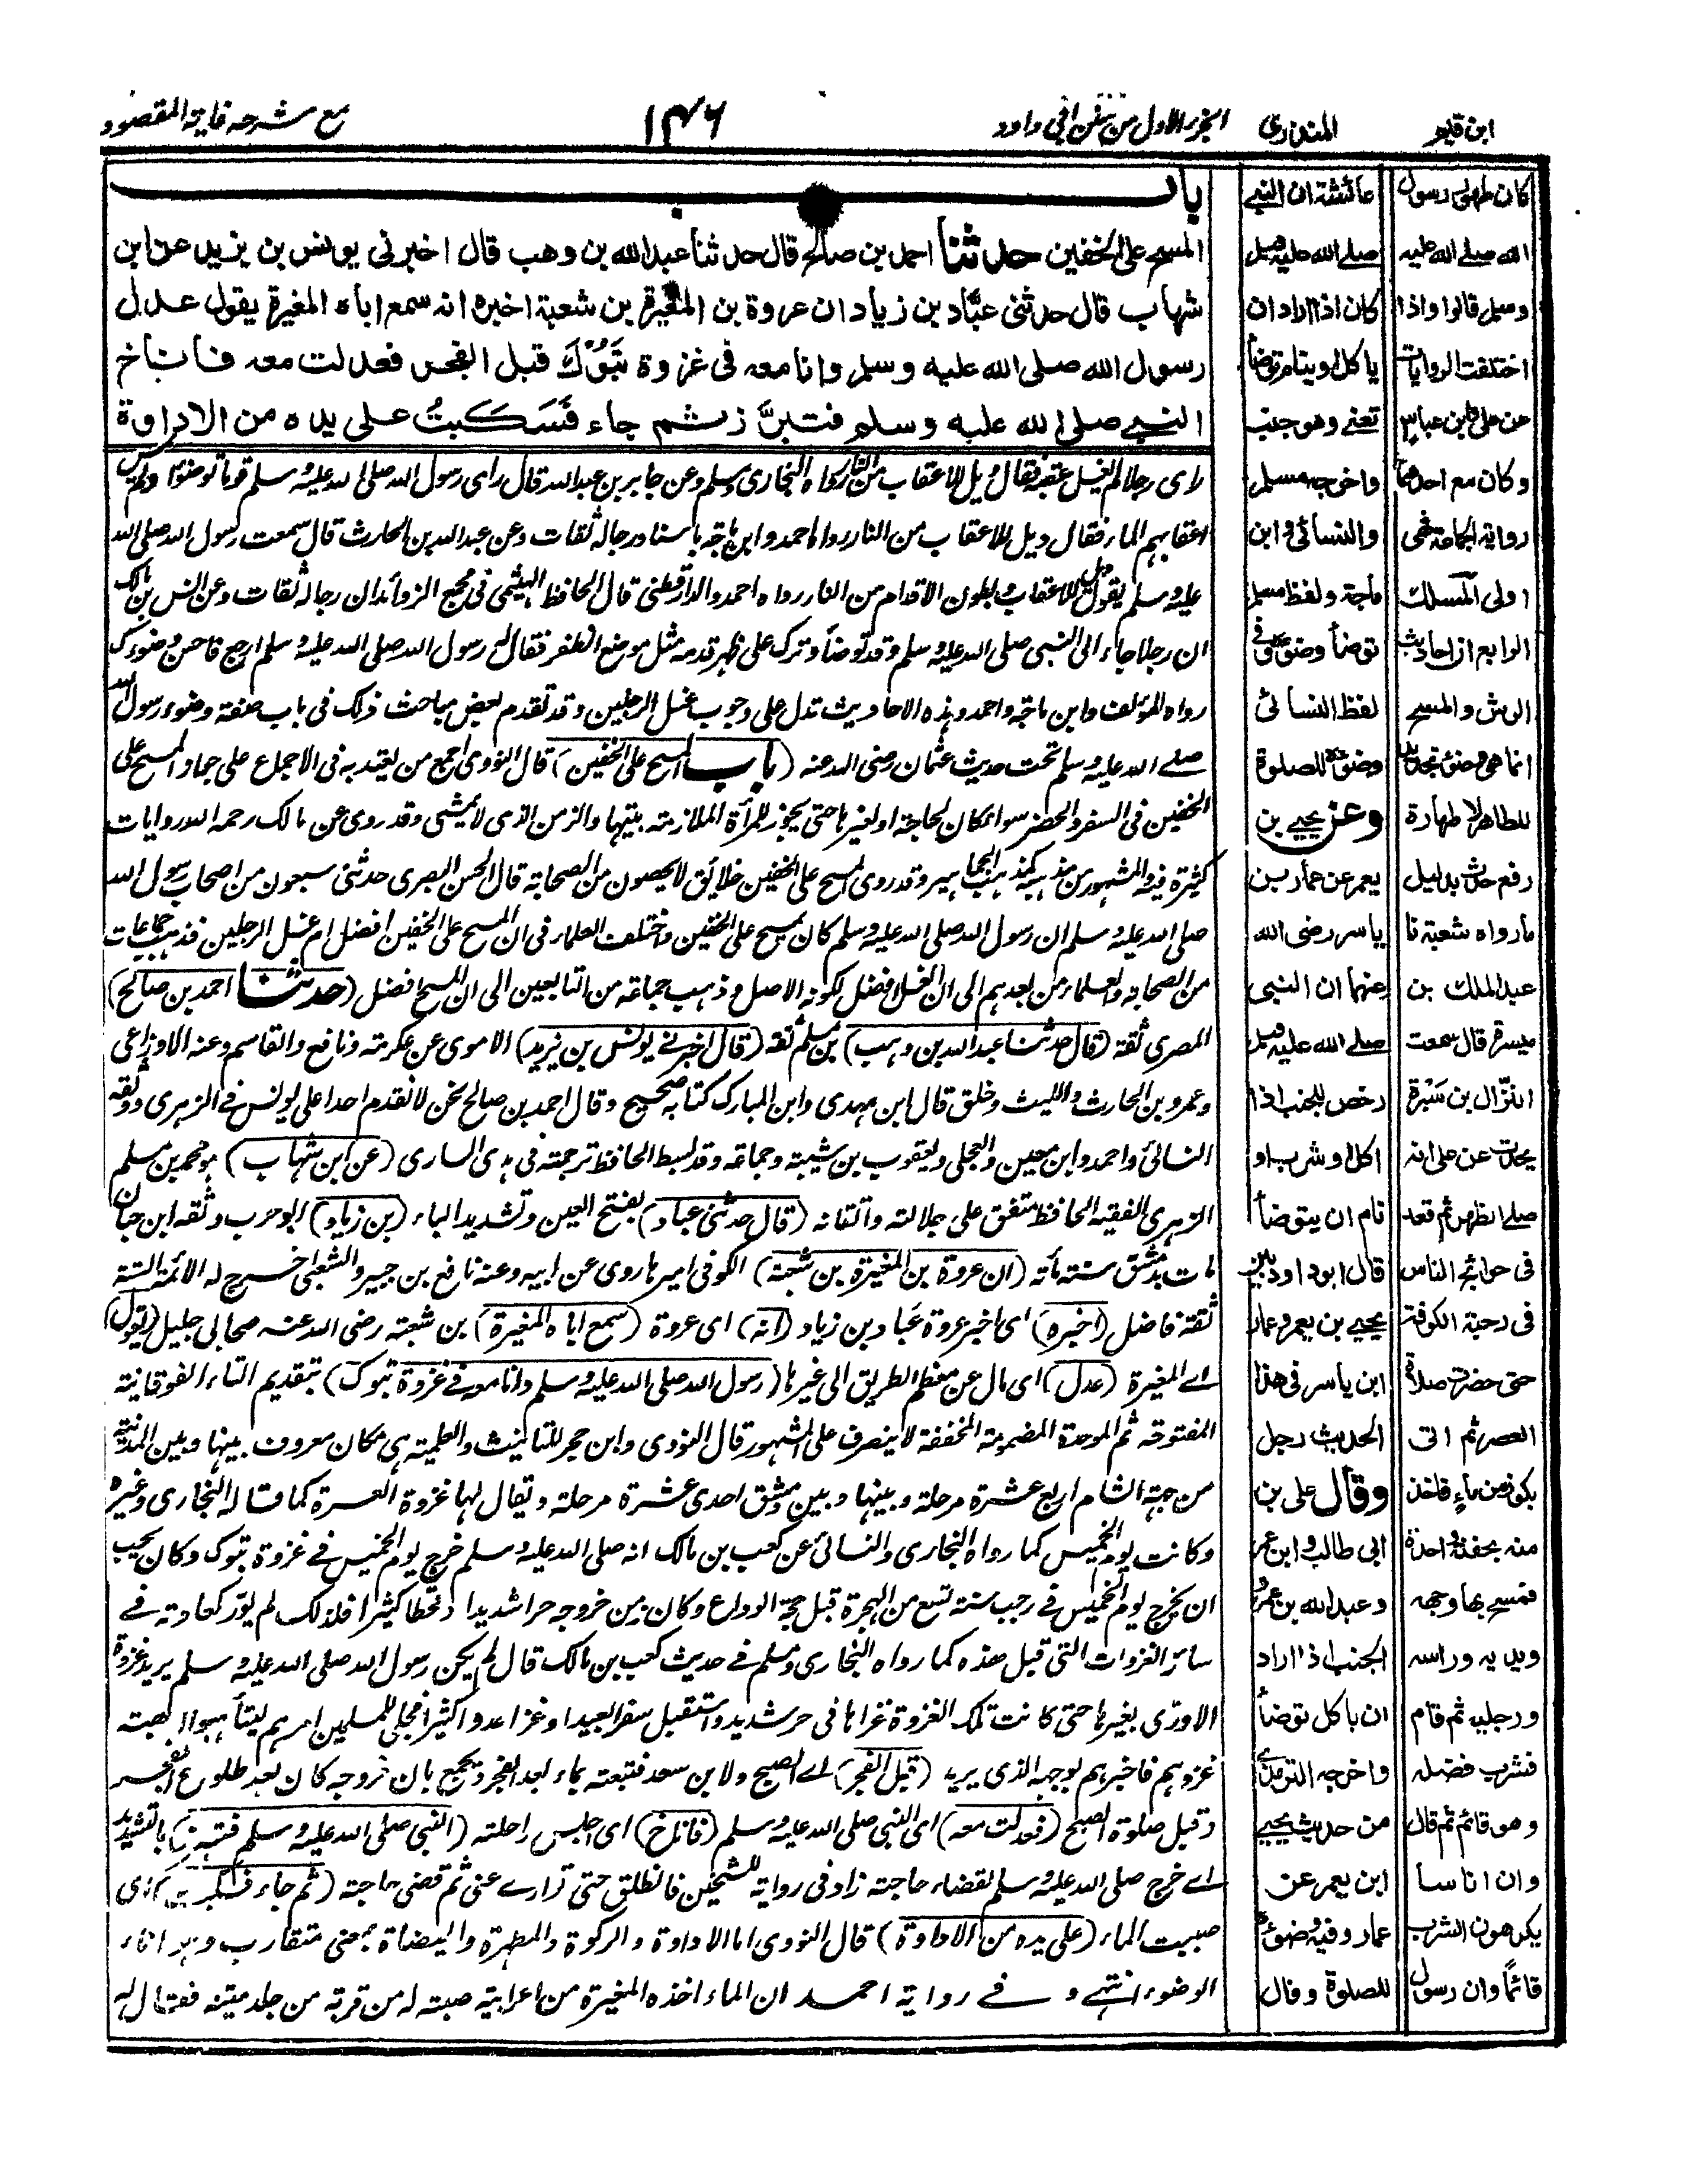 ابن قيم
المنذري
الجزء الاول من سنن ابي داود
١٤٦
مع شرحه غاية المقصود
باب
المسح على الخفين حدثنا احمد بن صالح قال حدثنا عبد الله بن وهب قال اخبرني يونس بن يزيد عن ابن
شهاب قال حدثني عبَّاد بن زياد ان عروة بن المغيرة بن شعبة اخبره انه سمع اباه المغيرة يقول عدل
رسول الله صلى الله عليه وسلم وانا معه في غزوة تَبُوْكَ قبل الفجر فعدلت معه فاناخ
النبي صلى الله عليه وسلم فتبرَّز ثم جاء فَسَكَبتُ على يده من الاداوة
راى رجلا لم يغسل عقبه فقال ويل للاعقاب من النار رواه البخاري ومسلم وعن جابر بن عبد الله قال راى رسول الله صلى الله عليه وسلم قوما توضؤا ولم يمس
اعقابهم الماء فقال ويل للاعقاب من النار رواه احمد وابن ماجه باسناد رجاله ثقات وعن عبد الله بن الحارث قال سمعت رسول الله صلى الله
عليه وسلم يقول ويل للاعقاب وبطون الاقدام من النار رواه احمد والدارقطني قال الحافظ الهيثمي في مجمع الزوائد ان رجاله ثقات وعن انس بن مالك
ان رجلا جاء الى النبي صلى الله عليه وسلم وقد توضأ وترك على ظهر قدمه مثل موضع الظفر فقال له رسول الله صلى الله عليه وسلم ارجع فاحسن وضوءك
رواه المؤلف وابن ماجه واحمد وهذه الاحاديث تدل على وجوب غسل الرجلين وقد تقدم بعض مباحث ذلك في باب صفة وضوء رسول الله
صلى الله عليه وسلم تحت حديث عثمان رضي الله عنه (باب المسح على الخفين) قال النووي اجمع من يعتد به في الاجماع على جواز المسح على
الخفين في السفر والحضر سواء كان لحاجة او لغيرها حتى يجوز للمرأة الملازمة بيتها والزمن الذي لا يمشي وقد روي عن مالك رحمه الله روايات
كثيرة فيه والمشهور من مذهبه كمذهب الجماهير وقد روى المسح على الخفين خلائق لا يحصون من الصحابة قال الحسن البصري حدثني سبعون من اصحاب رسول الله
صلى الله عليه وسلم ان رسول الله صلى الله عليه وسلم كان يمسح على الخفين واختلف العلماء في ان المسح على الخفين افضل ام غسل الرجلين فذهب جماعات
من الصحابة والعلماء من بعدهم الى ان الغسل افضل لكونه الاصل وذهب جماعة من التابعين الى ان المسح افضل (حدثنا احمد بن صالح)
المصري ثقة (قال حدثنا عبد الله بن وهب) بن مسلم ثقة (قال اخبرني يونس بن يزيد) الاموي عن عكرمة ونافع والقاسم وعنه الاوزاعي
وعمرو بن الحارث والليث وخلق قال ابن مهدي وابن المبارك كتابه صحيح وقال احمد بن صالح نحن لا نقدم احدا على يونس في الزهري ووثقه
النسائي واحمد وابن معين والعجلي ويعقوب بن شيبة وجماعة وقد بسط الحافظ ترجمته في هدى الساري (عن ابن شهاب) هو محمد بن مسلم
الزهري الفقيه الحافظ متفق على جلالته واتقانه (قال حدثني عباد) بفتح العين وتشديد الباء (بن زياد) ابو حرب وثقه ابن حبان
مات بدمشق سنة مائة (ان عروة بن المغيرة بن شعبة) الكوفي اميرها روى عن ابيه وعنه نافع بن جبير والشعبي اخرج له الائمة الستة
ثقة فاضل (اخبره) اى اخبر عروة عَبّاد بن زياد (انه) اى عروة (سمع اباه المغيرة) بن شعبة رضي الله عنه صحابي جليل (يقول)
اے المغيرة (عدل) اى مال عن معظم الطريق الى غيرها (رسول الله صلى الله عليه وسلم وانا معه في غزوة تبوك) بتقديم التاء الفوقانية
المفتوحة ثم الموحدة المضمومة المخففة لا ينصرف على المشهور قال النووي وابن حجر للتأنيث والعلمية هي مكان معروف بينها وبين المدينة
من جهة الشام اربع عشرة مرحلة وبينها وبين دمشق احدى عشرة مرحلة ويقال لها غزوة العسرة كما قاله البخاري وغيره
وكانت يوم الخميس كما رواه البخاري والنسائي عن كعب بن مالك انه صلى الله عليه وسلم خرج يوم الخميس في غزوة تبوك وكان يحب
ان يخرج يوم الخميس في رجب سنة تسع من الهجرة قبل حجة الوداع وكان زمن خروجه حرا شديدا وقحطا كثيرا فلذلك لم يورّ كعادته في
سائر الغزوات التي قبل هذه كما رواه البخاري ومسلم في حديث كعب بن مالك قال لم يكن رسول الله صلى الله عليه وسلم يريد غزوة
الا ورّى بغيرها حتى كانت تلك الغزوة غزاها في حر شديد واستقبل سفرا بعيدا وغزا عدوا كثيرا فجلى للمسلمين امرهم ليتأهبوا اهبة
غزوهم فاخبرهم بوجهه الذي يريد (قبل الفجر) اے الصبح ولابن سعد فتبعته بماء بعد الفجر ويجمع بان خروجه كان بعد طلوع الفجر
وقبل صلوة الصبح (فعدلت معه) اى النبي صلى الله عليه وسلم (فاناخ) اى اجلس راحلته (النبي صلى الله عليه وسلم فتبرز) بالتشديد
اے خرج صلى الله عليه وسلم لقضاء حاجته زاد في رواية للشيخين فانطلق حتى توارى عني ثم قضى حاجته (ثم جاء فسكبت) اى
صببت الماء (على يده من الاداوة) قال النووي اما الاداوة والركوة والمطهرة والميضاة بمعنى متقارب وهو اناء
الوضوء انتهى وفي رواية احمد ان الماء اخذه المغيرة من اعرابية صبته له من قربة من جلد ميتة فقال له
عائشة ان النبي
صلى الله عليه وسلم
كان اذا اراد ان
ياكل او ينام توضأ
تعني وهو جنب
واخرجه مسلم
والنسائي وابن
ماجة ولفظ مسلم
توضأ وضوءه وفي
لفظ النسائي
وضوءه للصلوة
وعن يحيى بن
يعمر عن عمار بن
ياسر رضى الله
عنهما ان النبي
صلى الله عليه وسلم
رخص للجنب اذا
اكل او شرب او
نام ان يتوضأ
قال ابو داود بين
يحيى بن يعمر وعمار
ابن ياسر في هذا
الحديث رجل
وقال على بن
ابي طالب وابن عمر
وعبد الله بن عمرو
الجنب اذا اراد
ان ياكل توضأ
واخرجه الترمذي
من حديث يحيى
ابن يعمر عن
عمار وفيه وضوءه
للصلوة وقال
كان طهور رسول
الله صلى الله عليه
وسلم قالوا واذا
اختلفت الروايات
عن علي وابن عباس
وكان مع احدهما
رواية الجماعة فهي
اولى المسلك
الرابع ان احاديث
الرش والمسح
انما هي وضوء تجديد
للطاهر لا طهارة
رفع حدث بدليل
ما رواه شعبة نا
عبد الملك بن
ميسرة قال سمعت
النزّال بن سَبْرة
يحدث عن على انه
صلى الظهر ثم قعد
في حوائج الناس
في رحبة الكوفة
حتى حضرت صلاة
العصر ثم اتى
بكوز من ماءٍ فاخذ
منه بحفنة واحدة
فمسح بها وجهه
ويديه وراسه
ورجليه ثم قام
فشرب فضله
وهو قائم ثم قال
وان اناسا
يكرهون الشرب
قائمًا وان رسول